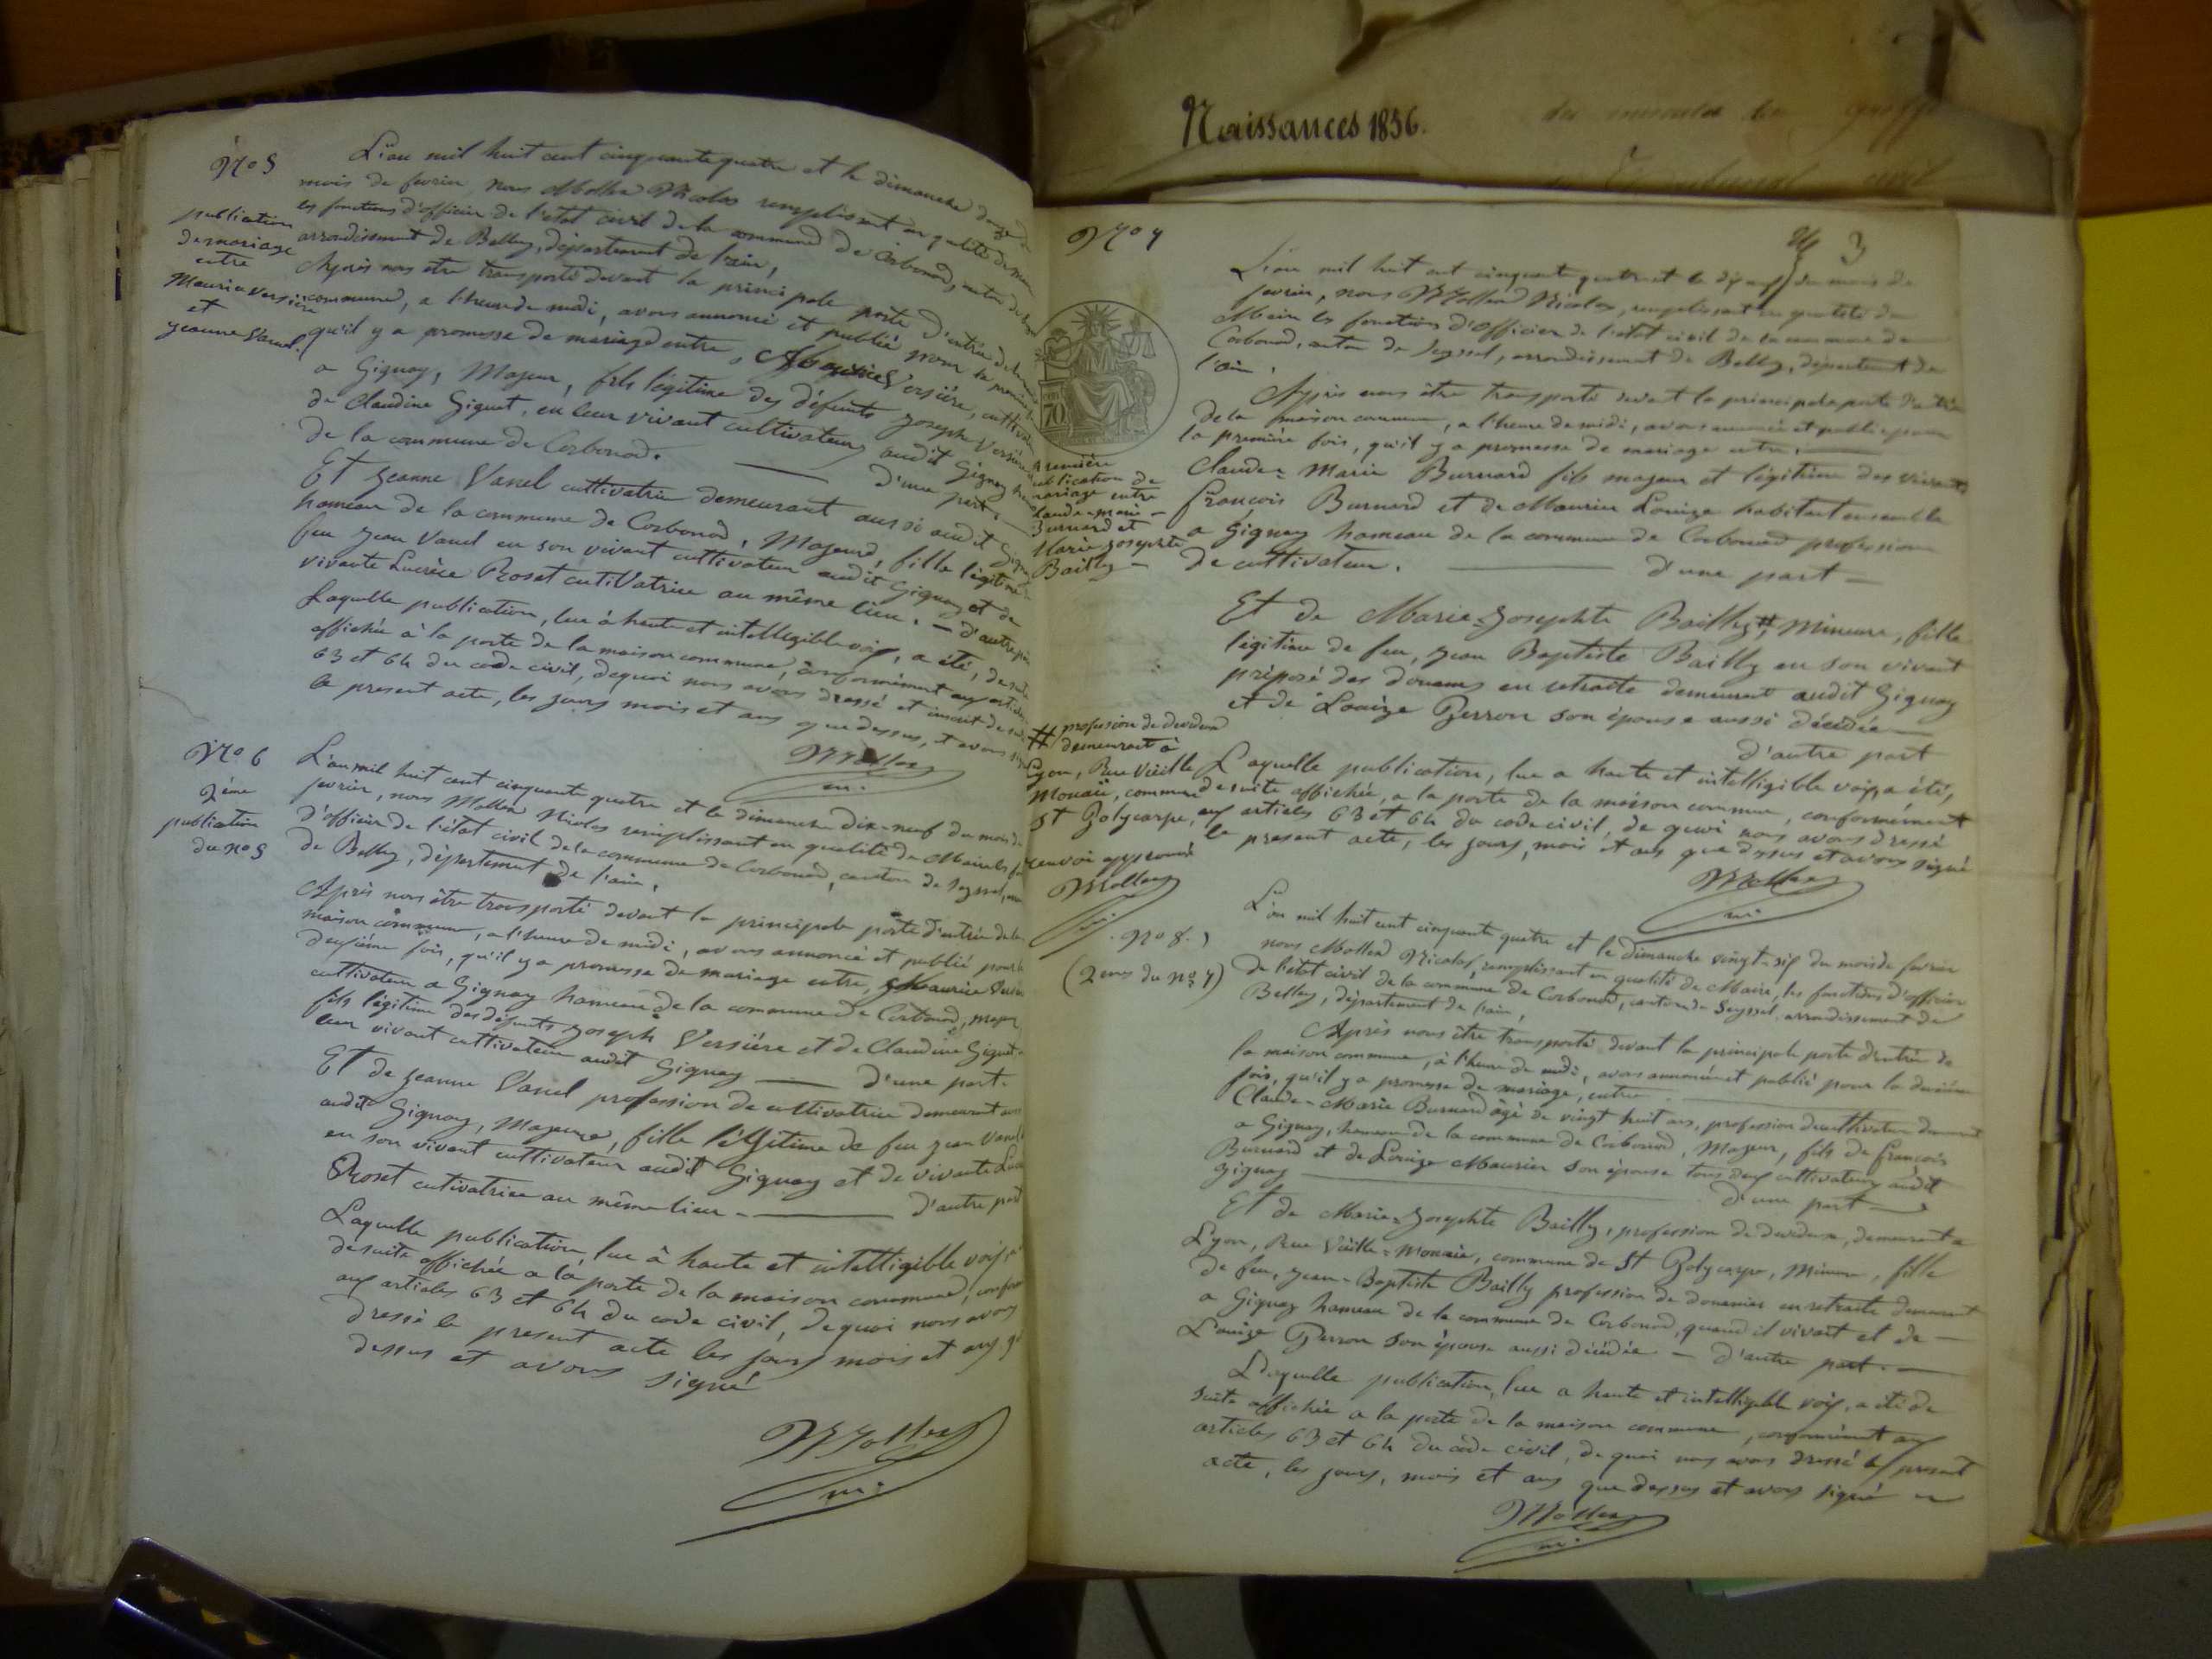 Naissances 1856.
No 5
publication
de mariage
entre
Maurice Versière
et
Jeanne Vanel.
L'an mil huit cent cinquante quatre et le dimanche douze
mois de fevrier, nous Mollex Nicolas remplissant en qualité de maire
les fonctions d'officier de l'état civil de la commune de Corbonod, canton de
arrondissement de Belley, département de l'ain,
Après nous être transporté devant la principale porte d'entrée de la
commune, a l'heure de midi, avons annoncé et publié pour la première
qu'il y a promesse de mariage entre, Maurice Versière, cultivateur
a Gignay, Majeur, fils légitime des défunts Joseph Versière
de Claudine Giguet, en leur vivant cultivateurs audit Gignay
de la commune de Corbonod. d'une part.
Et Jeanne Vanel cultivatrice demeurant aussi audit Gignay
hameau de la commune de Corbonod, Majeure, fille légitime
feu Jean Vanel en son vivant cultivateur audit Gignay et de
vivante Lucrèce Roset cultivatrice au même lieu. — d'autre part
Laquelle publication, lue à haute et intelligible voix, a été, de suite
affichée à la porte de la maison commune, conformément aux articles
63 et 64 du code civil, de quoi nous avons dressé et inscrit de suite
le present acte, les jours mois et ans que dessus, et avons signé
Mollex
m.
No 6
2ème
publication
du no 5
L'an mil huit cent cinquante quatre et le dimanche dix-neuf du mois de
fevrier, nous Mollex Nicolas remplissant en qualité de Maire les
d'officier de l'état civil de la commune de Corbonod, canton de Seyssel,
de Belley, département de l'ain,
Après nous être transporté devant la principale porte d'entrée de la
maison commune, a l'heure de midi, avons annoncé et publié pour la
deuxième fois, qu'il y a promesse de mariage entre, Maurice
cultivateur a Gignay hameau de la commune de Corbonod, majeur
fils légitime des défunts Joseph Versière et de Claudine Giguet
leur vivant cultivateur audit Gignay — d'une part.
Et de Jeanne Vanel profession de cultivatrice demeurant
audit Gignay, Majeure, fille légitime de feu Jean Vanel
en son vivant cultivateur audit Gignay et de vivante
Roset cutivatrice au même lieu. — d'autre part
Laquelle publication, lue à haute et intelligible voix,
de suite affichée a la porte de la maison commune,
aux articles 63 et 64 du code civil, de quoi nous avons
dressé le present acte les jours mois et ans
dessus et avons signé
Mollex
m.
3
No 7
70
Première
publication de
mariage entre
Claude-Marie
Burnard et
Marie Josephte
Bailly
L'an mil huit cent cinquante quatre et le dix neuf du mois de
fevrier, nous Mollex Nicolas, remplissant en qualité de
Maire les fonctions d'officier de l'état civil de la commune de
Corbonod, canton de Seyssel, arrondissement de Belley, département de
l'ain,
Après nous être transporté devant la principale porte d'entrée
de la maison commune, a l'heure de midi, avons annoncé et publié pour
la première fois, qu'il y a promesse de mariage entre.
Claude-Marie Burnard fils majeur et légitime des vivants
François Burnard et de Maurier Louise habitant ensemble
a Gignay hameau de la commune de Corbonod profession
de cultivateur. — d'une part —
Et de Marie-Josephte Bailly # mineure, fille
légitime de feu, Jean Baptiste Bailly en son vivant
préposé des Douanes en retraite demeurant audit Gignay
et de Louise Perron son épouse aussi décédée —
d'autre part
# profession de devideuse
demeurant à
Lyon, Rue Vieille
Monaie, commune
St Polycarpe,
renvoi approuvé
Mollex
m.
Laquelle publication, lue a haute et intelligible voix, a été,
de suite affichée, a la porte de la maison commune, conformément
aux articles 63 et 64 du code civil, de quoi nous avons dressé
le present acte, les jours, mois et ans que dessus et avons signé
Mollex
m.
no 8.
(2eme du no 7)
L'an mil huit cent cinquante quatre et le dimanche vingt-six du mois de fevrier
nous Mollex Nicolas, remplissant en qualité de Maire, les fonctions d'officier
de l'état civil de la commune de Corbonod, canton de Seyssel, arrondissement de
Belley, département de l'ain,
Après nous être transporté devant la principale porte d'entrée de
la maison commune, à l'heure de midi, avons annoncé et publié pour la deuxième
fois, qu'il y a promesse de mariage, entre
Claude-Marie Burnard âgé de vingt huit ans, profession de cultivateur demeurant
a Gignay, hameau de la commune de Corbonod, Majeur, fils de François
Burnard et de Louise Maurier son épouse tous deux cultivateurs audit
Gignay — d'une part —
Et de Marie-Josephte Bailly, profession de devideuse, demeurant a
Lyon, Rue Vieille-Monaie, commune de St Polycarpe, Mineure, fille
de feu, Jean-Baptiste Bailly profession de douanier en retraite demeurant
a Gignay hameau de la commune de Corbonod, quand il vivait et de —
Louise Perron son épouse aussi décédée — d'autre part. —
Laquelle publication, lue a haute et intelligible voix, a été de
suite affichée a la porte de la maison commune, conformément aux
articles 63 et 64 du code civil, de quoi nous avons dressé le present
acte, les jours, mois et ans que dessus et avons signé
Mollex
m.